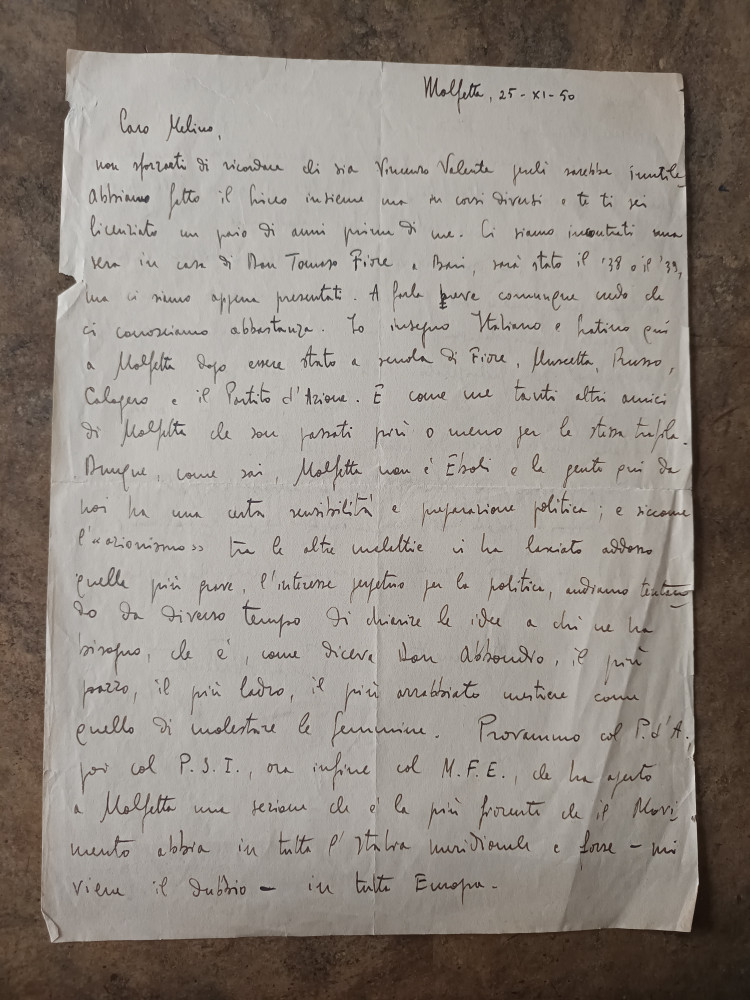 Molfetta, 25-XI-50
Caro Melino,
non sforzarti di ricordare chi sia Vincenzo Valente perché sarebbe inutile.
Abbiamo fatto il liceo insieme ma in corsi diversi e te ti sei
licenziato un paio di anni prima di me. Ci siamo incontrati una
sera in casa di Don Tomaso Fiore a Bari, sarà stato il '38 o il '39,
ma ci siamo appena presentati. A farla breve comunque credo che
ci conosciamo abbastanza. Io insegno Italiano e Latino qui
a Molfetta dopo essere stato a scuola di Fiore, Muscetta, Russo,
Calogero e il Partito d'Azione. E come me tanti altri amici
di Molfetta che son passati più o meno per la stessa trafila.
Dunque, come sai, Molfetta non è Eboli e la gente qui da
noi ha una certa sensibilità e preparazione politica; e siccome
l'«azionismo» tra le altre malattie ci ha lasciato addosso
quella più grave, l'interesse perpetuo per la politica, andiamo tentan
do da diverso tempo di chiarire le idee a chi ne ha
bisogno, che è, come diceva Don Abbondio, il più
pazzo, il più ladro, il più arrabbiato mestiere come
quello di molestare le femmine. Provammo col P.d'A.,
poi col P.S.I., ora infine col M.F.E., che ha aperto
a Molfetta una sezione che è la più fiorente che il Movi
mento abbia in tutta l'Italia meridionale e forse – mi
viene il dubbio – in tutta Europa.